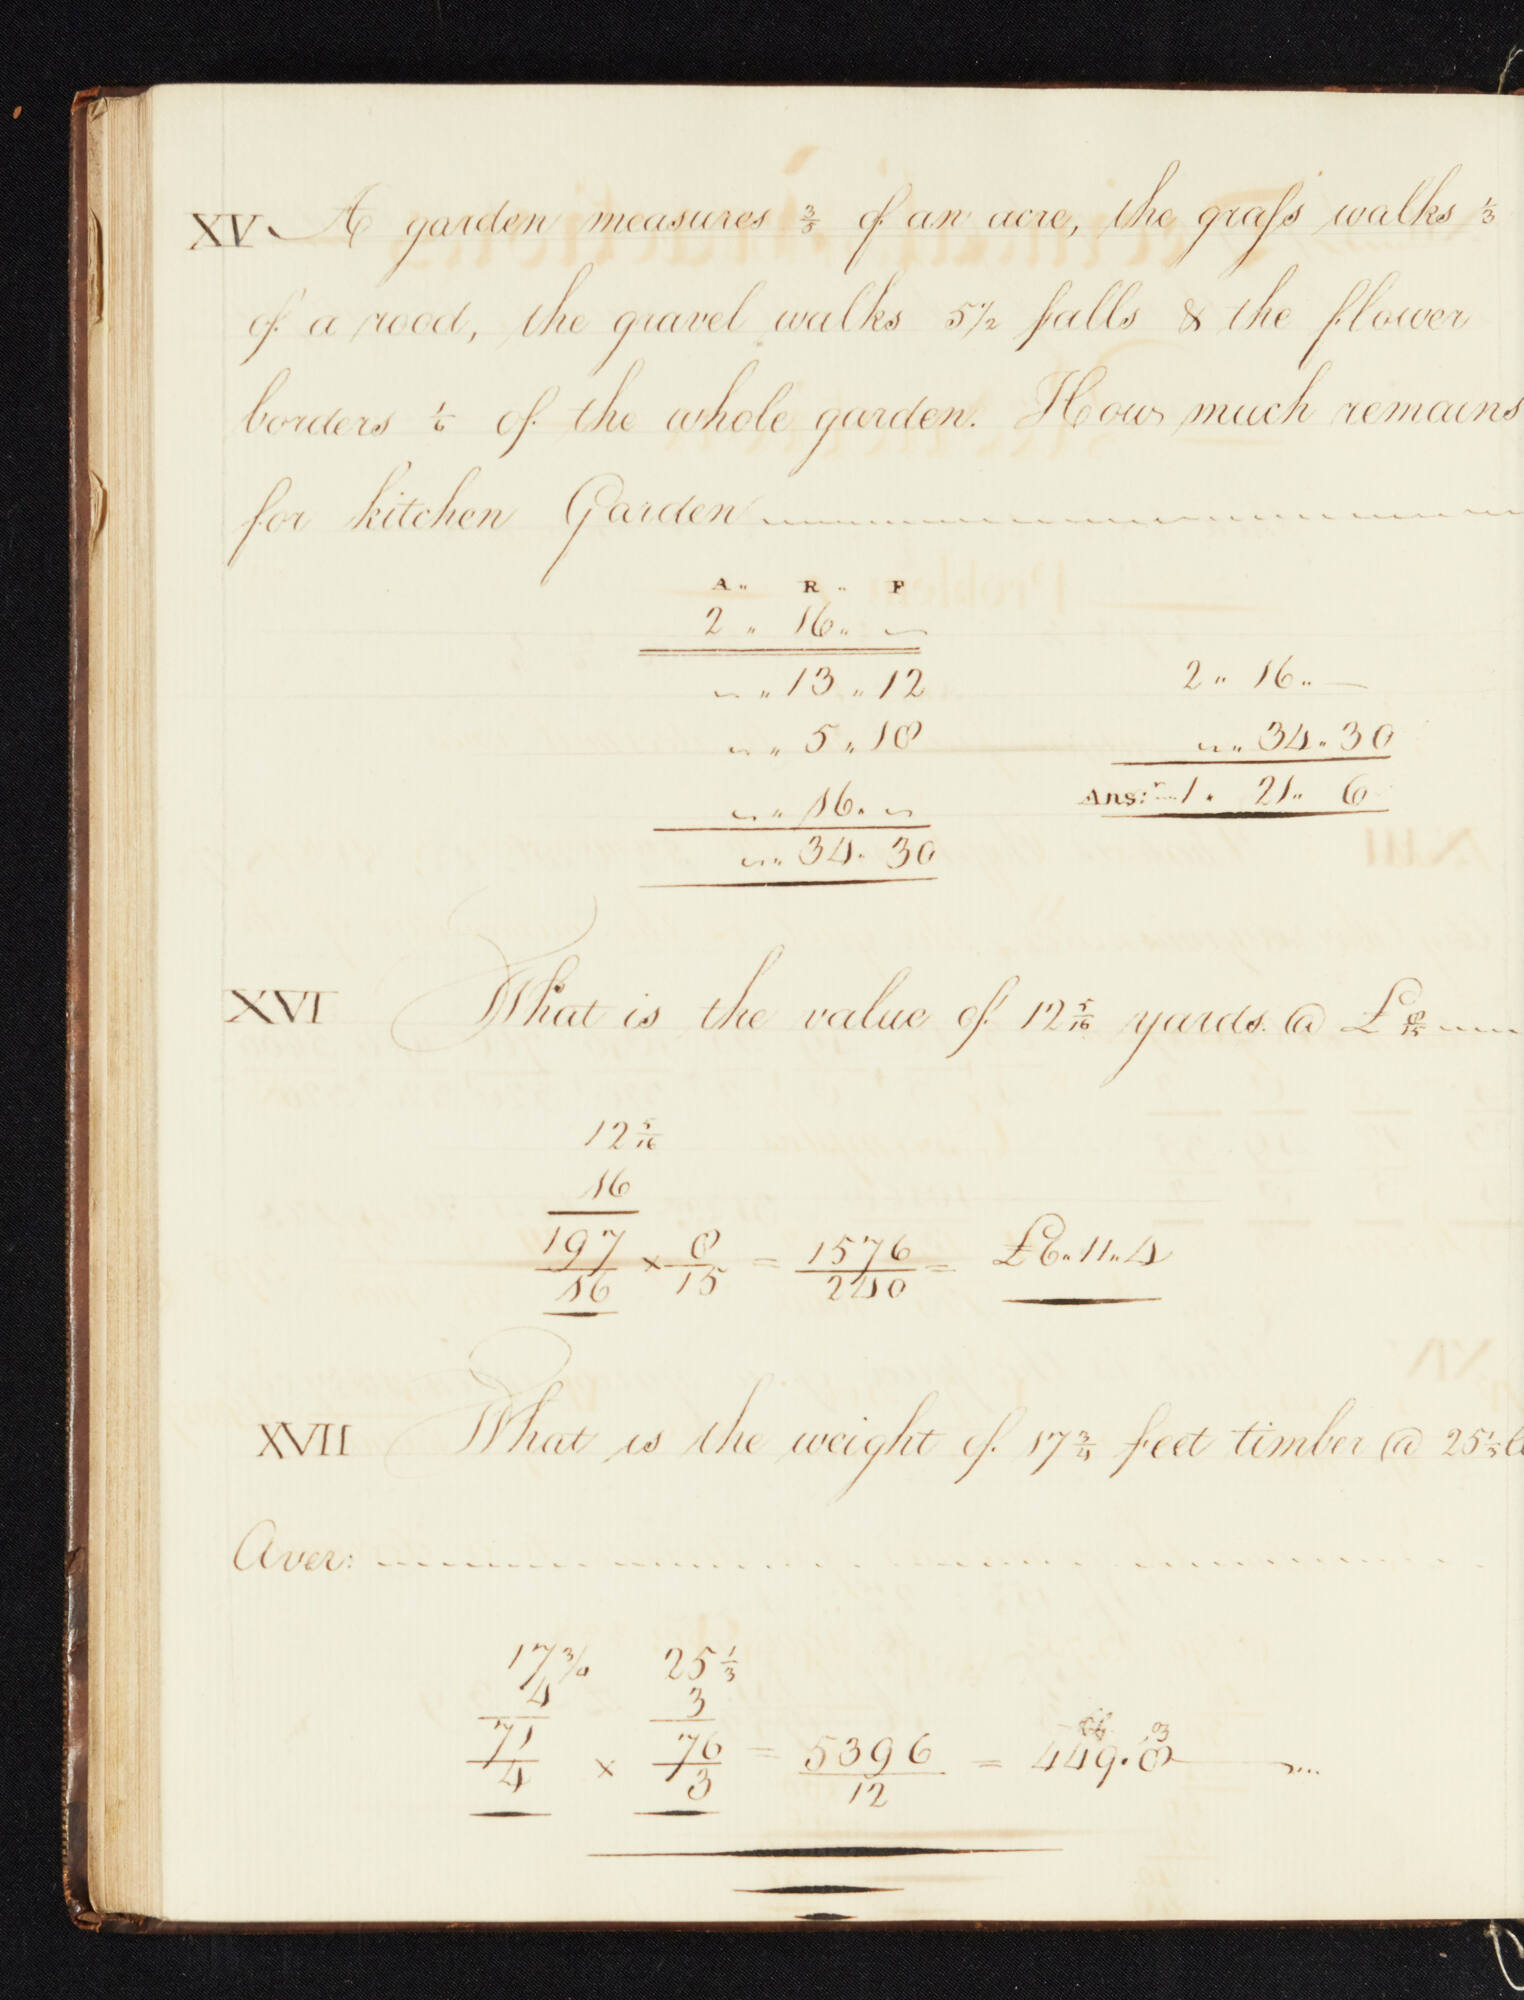 XV A garden measures 3/5 of an acre, the graſs walks 1/3
of a rood, the gravel walks 5 1/2 falls & the flower
borders 1/6 of the whole garden. How much remains
for kitchen Garden
A " R " F
2 " 16 "
" 13 " 12
" 5 " 18
" 16 "
" 34 " 30
2 " 16 "
" 34 " 30
Ans:r 1 " 21 " 6
XVI What is the value of 12 5/16 yards @ £ 8/15
12 5/16
16
197/16 × 8/15 = 1576/240 = £6 " 11 " 4
XVII What is the weight of 17 3/4 feet timber @ 25 1/3
Aver:
17 3/4 25 1/3
4 3
71/4 × 76/3 = 5396/12 = 449 . 8